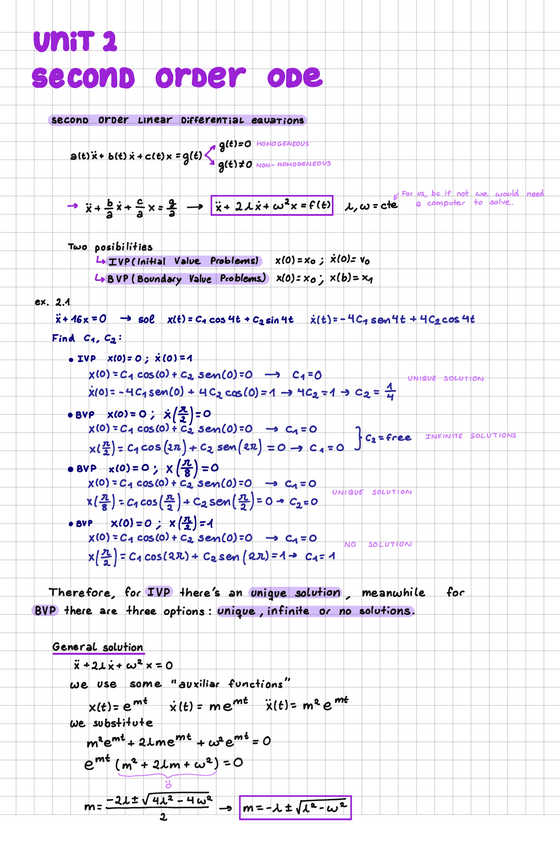 UNIT 2
SECOND ORDER ODE
SECOND ORDER LINEAR DIFFERENTIAL EQUATIONS
g(t)=0 HOMOGENEOUS
a(t)ẍ + b(t)ẋ + c(t)x = g(t)
g(t)≠0 NON-HOMOGENEOUS
→ ẍ + b/a ẋ + c/a x = g/a → ẍ + 2λẋ + ω²x = f(t) λ, ω = cte
For us, bc if not we would need
a computer to solve.
Two posibilities
↳ IVP (Initial Value Problems) x(0)=x₀ ; ẋ(0)=v₀
↳ BVP (Boundary Value Problems) x(0)=x₀ ; x(b)=x₁
ex. 2.1
ẍ + 16x = 0 → sol x(t) = C₁ cos 4t + C₂ sin 4t ẋ(t) = -4C₁ sen 4t + 4C₂ cos 4t
Find C₁, C₂ :
• IVP x(0)=0 ; ẋ(0)=1
x(0) = C₁ cos(0) + C₂ sen(0) = 0 → C₁ = 0
ẋ(0) = -4C₁ sen(0) + 4C₂ cos(0) = 1 → 4C₂ = 1 → C₂ = 1/4 UNIQUE SOLUTION
• BVP x(0)=0 ; ẋ(π/2)=0
x(0) = C₁ cos(0) + C₂ sen(0) = 0 → C₁ = 0
x(π/2) = C₁ cos(2π) + C₂ sen(2π) = 0 → C₁ = 0 } C₂ = free INFINITE SOLUTIONS
• BVP x(0)=0 ; x(π/8)=0
x(0) = C₁ cos(0) + C₂ sen(0) = 0 → C₁ = 0
x(π/8) = C₁ cos(π/2) + C₂ sen(π/2) = 0 → C₂ = 0 UNIQUE SOLUTION
• BVP x(0)=0 ; x(π/2)=1
x(0) = C₁ cos(0) + C₂ sen(0) = 0 → C₁ = 0
x(π/2) = C₁ cos(2π) + C₂ sen(2π) = 1 → C₁ = 1 NO SOLUTION
Therefore, for IVP there's an unique solution, meanwhile for
BVP there are three options: unique, infinite or no solutions.
General solution
ẍ + 2λẋ + ω²x = 0
we use some "auxiliar functions"
x(t) = e^mt ẋ(t) = me^mt ẍ(t) = m²e^mt
we substitute
m²e^mt + 2λme^mt + ω²e^mt = 0
e^mt (m² + 2λm + ω²) = 0
m = (-2λ ± √(4λ² - 4ω²))/2 → m = -λ ± √(λ² - ω²)